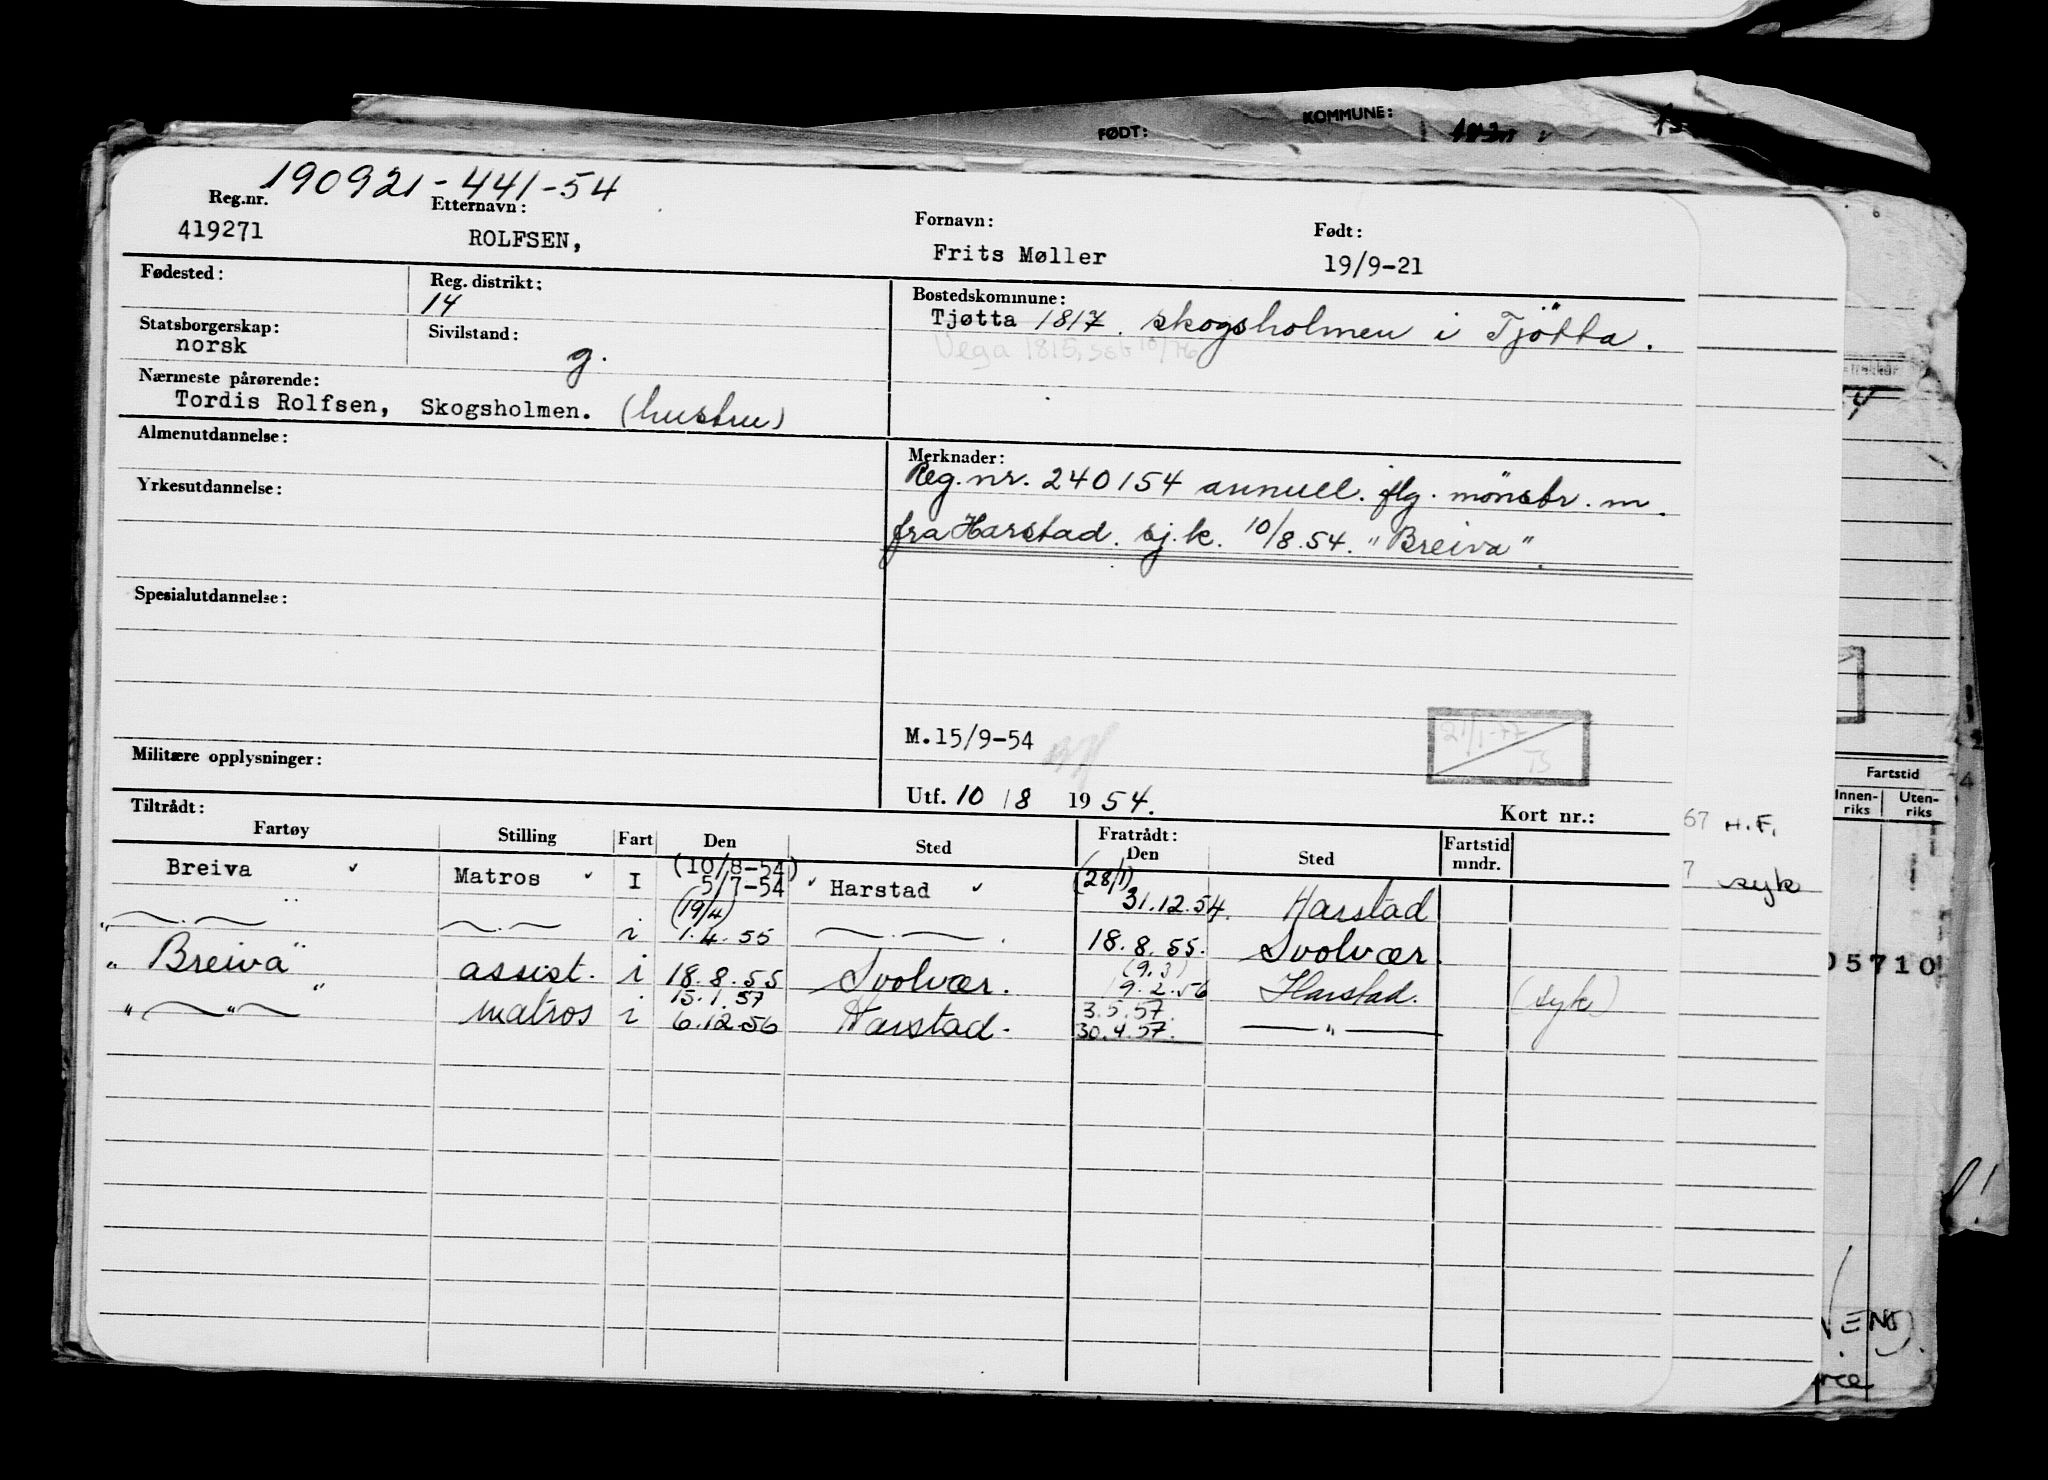 FØDT: KOMMUNE:
190921-441-54
Reg.nr. Etternavn: Fornavn: Født:
419271 ROLFSEN, Frits Møller 19/9-21
Fødested: Reg. distrikt: Bostedskommune:
14 Tjøtta 1817. Skogsholmen i Tjötta.
Statsborgerskap: Sivilstand: Vega 1815, ssb 10/76
norsk g.
Nærmeste pårørende:
Tordis Rolfsen, Skogsholmen. (hustru)
Almenutdannelse: Merknader:
Reg.nr. 240154 annull. flg. mönstr. m.
Yrkesutdannelse:
fra Harstad. sj.k. 10/8.54. "Breiva".
Spesialutdannelse:
M.15/9-54
21/1-77
TS
Militære opplysninger:
Utf. 10/8 1954. Kort nr.:
Tiltrådt: Fratrådt:
Fartøy Stilling Fart Den Sted Den Sted Fartstid mndr.
(10/8-54) (28/1)
Breiva Matros I 5/7-54 Harstad 31.12.54. Harstad
(19/4)
" — . — " — . — i 1.4.55 — . — . 18.8.55. Svolvær.
(9.3)
"Breiva" assist. i 18.8.55 Svolvær. 19.2.56 Harstad. (syk)
15.1.57 3.5.57.
" — " — " matros i 6.12.56 Harstad. 30.4.57. — " —
Fartstid
Innen-riks Uten-riks
67 H.F.
7 syk
05710